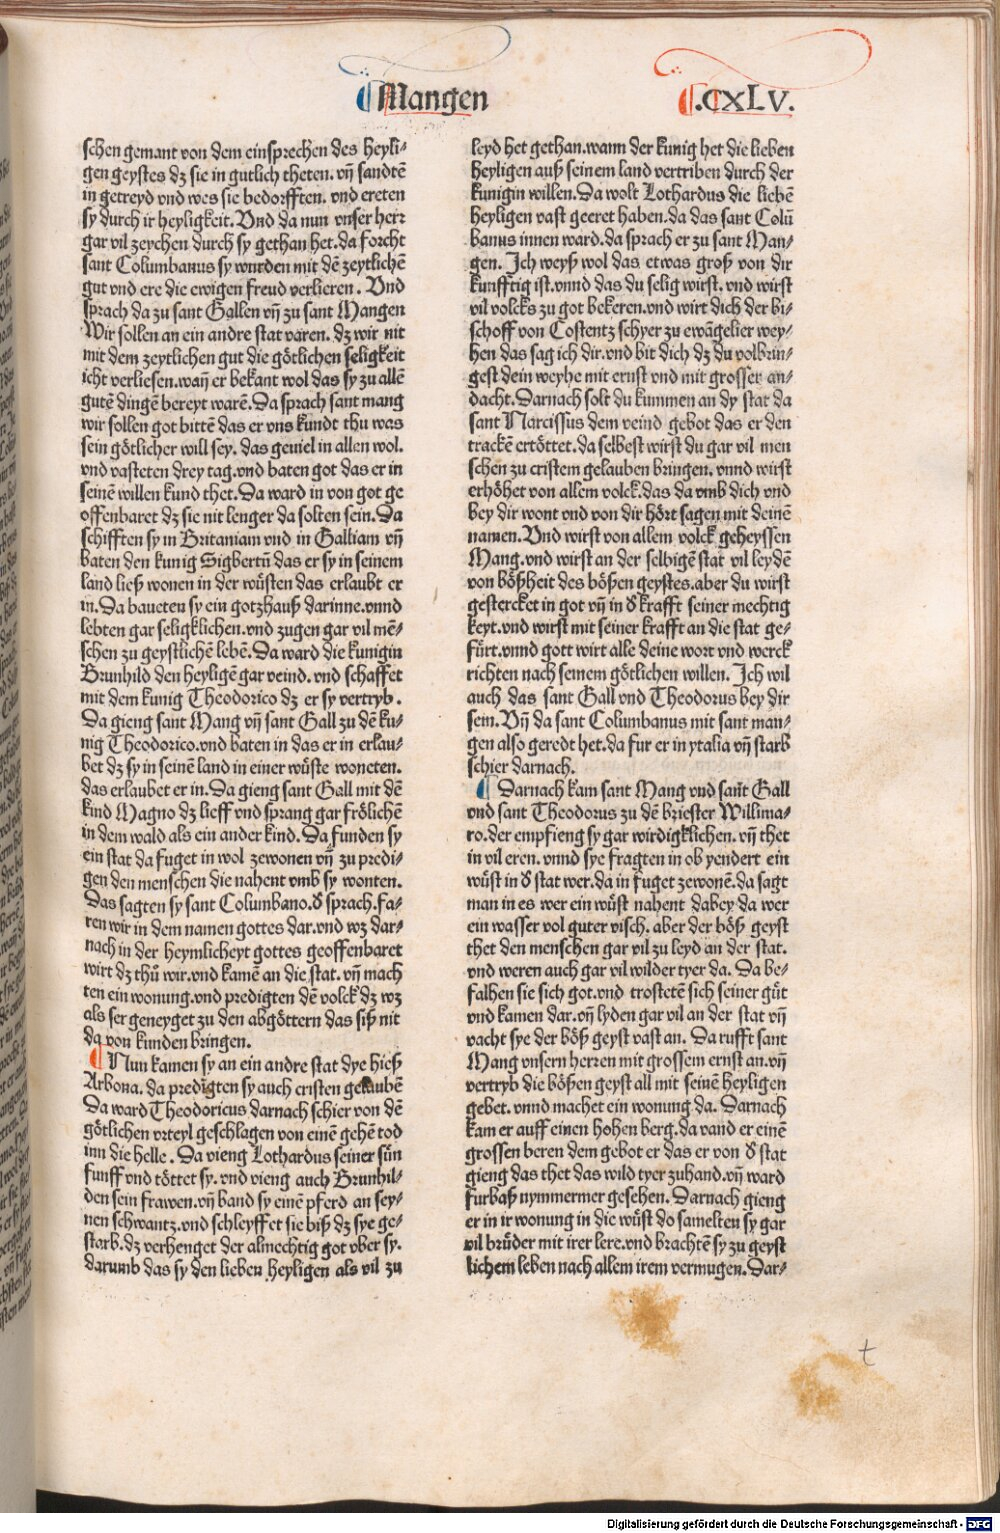 ¶ Mangen
¶ .CXLV.
schen gemant von dem einsprechen des heyli⸗
gen geystes dz sie in gutlich theten. vñ sandtē
in getreyd vnd wes sie bedorfften. vnd ereten
sy durch ir heyligkeit. Vnd da nun vnser herr
gar vil zeychen durch sy gethan het. da forcht
sant Columbanus sy wurden mit dē zeytlichē
gut vnd ere die ewigen freud verlieren. Vnd
sprach da zu sant Gallen vñ zu sant Mangen
Wir sollen an ein andre stat varen. dz wir nit
mit dem zeytlichen gut die götlichen seligkeit
icht verliesen. wañ er bekant wol das sy zu allē
gutē dingē bereyt warē. Da sprach sant mang
wir sollen got bittē das er vns kundt thu was
sein götlicher will sey. das geuiel in allen wol.
vnd vasteten drey tag. vnd baten got das er in
seinē willen kund thet. Da ward in von got ge
offenbaret dz sie nit lenger da solten sein. Da
schifften sy in Britaniam vnd in Galliam vñ
baten den kunig Sigbertū das er sy in seinem
land ließ wonen in der wüsten das erlaubt er
in. Da baueten sy ein gotzhauß darinne. vnnd
lebten gar seligklichen. vnd zugen gar vil mē⸗
schen zu geystlichē lebē. Da ward die kunigin
Brunhild den heyligē gar veind. vnd schaffet
mit dem kunig Theodorico dz er sy vertryb.
Da gieng sant Mang vñ sant Gall zu dē ku⸗
nig Theodorico. vnd baten in das er in erlau⸗
bet dz sy in seinē land in einer wüste woneten.
das erlaubet er in. Da gieng sant Gall mit dē
kind Magno dz lieff vnd sprang gar frölichē
in dem wald als ein ander kind. Da funden sy
ein stat da fuget in wol zewonen vñ zu predi⸗
gen den menschen die nahent vmb sy wonten.
Das sagten sy sant Columbano. d̄ sprach. fa⸗
ren wir in dem namen gottes dar. vnd wz dar⸗
nach in der heymlicheyt gottes geoffenbaret
wirt dz thů wir. vnd kamē an die stat. vñ mach
ten ein wonung. vnd predigten dē volck dz wz
als ser geneyget zu den abgöttern das siß nit
da von kunden bringen.
¶ Nun kamen sy an ein andre stat dye hieß
Arbona. da predigten sy auch cristen gelaubē
Da ward Theodoricus darnach schier von dē
götlichen vrteyl geschlagen von einē gehē tod
inn die helle. Da vieng Lothardus seiner sün
funff vnd töttet sy. vnd vieng auch Brunhil⸗
den sein frawen. vñ band sy einē pferd an sey⸗
nen schwantz. vnd schleyffet sie biß dz sye ge⸗
starb. dz verhenget der almechtig got vber sy.
darumb das sy den lieben heyligen als vil zu
leyd het gethan. wann der kunig het die lieben
heyligen auß seinem land vertriben durch der
kunigin willen. Da wolt Lothardus die liebē
heyligen vast geeret haben. da das sant Colū
banus innen ward. da sprach er zu sant Man⸗
gen. Ich weyß wol das etwas groß von dir
kunfftig ist. vnnd das du selig wirst. vnd wirst
vil volcks zu got bekeren. vnd wirt dich der bi⸗
schoff von Costentz schyer zu ewāgelier wey⸗
hen das sag ich dir. vnd bit dich dz du volbrin⸗
gest dein weyhe mit ernst vnd mit grosser an⸗
dacht. Darnach solt du kummen an dy stat da
sant Narcissus dem veind gebot das er den
trackē ertöttet. da selbest wirst du gar vil men
schen zu cristem gelauben bringen. vnnd wirst
erhöhet von allem volck. das da vmb dich vnd
bey dir wont vnd von dir hört sagen mit deinē
namen. Vnd wirst von allem volck geheyssen
Mang. vnd wirst an der selbigē stat vil leydē
von bößheit des bößen geystes. aber du wirst
gestercket in got vñ in d̄ krafft seiner mechtig
keyt. vnd wirst mit seiner krafft an die stat ge⸗
fürt. vnnd gott wirt alle deine wort vnd werck
richten nach seinem götlichen willen. Ich wil
auch das sant Gall vnd Theodorus bey dir
sein. Vñ da sant Columbanus mit sant man⸗
gen also geredt het. da fur er in ytalia vñ starb
schier darnach.
¶ Darnach kam sant Mang vnd sañt Gall
vnd sant Theodorus zu dē briester Willima⸗
ro. der empfieng sy gar wirdigklichen. vñ thet
in vil eren. vnnd sye fragten in ob yendert ein
wüst in d̄ stat wer. da in fuget zewonē. da sagt
man in es wer ein wüst nahent dabey da wer
ein wasser vol guter visch. aber der böß geyst
thet den menschen gar vil zu leyd an der stat.
vnd weren auch gar vil wilder tyer da. Da be⸗
falhen sie sich got. vnd trostetē sich seiner güt
vnd kamen dar. vñ lyden gar vil an der stat vñ
vacht sye der böß geyst vast an. Da rufft sant
Mang vnsern herren mit grossem ernst an. vñ
vertryb die bößen geyst all mit seinē heyligen
gebet. vnnd machet ein wonung da. Darnach
kam er auff einen hohen berg. da vand er einē
grossen beren dem gebot er das er von d̄ stat
gieng das thet das wild tyer zuhand. vñ ward
furbaß nymmermer gesehen. Darnach gieng
er in ir wonung in die wüst do samelten sy gar
vil brüder mit irer lere. vnd brachtē sy zu geyst
lichem leben nach allem irem vermugen. Dar⸗
t
Digitalisierung gefördert durch die Deutsche Forschungsgemeinschaft - DFG